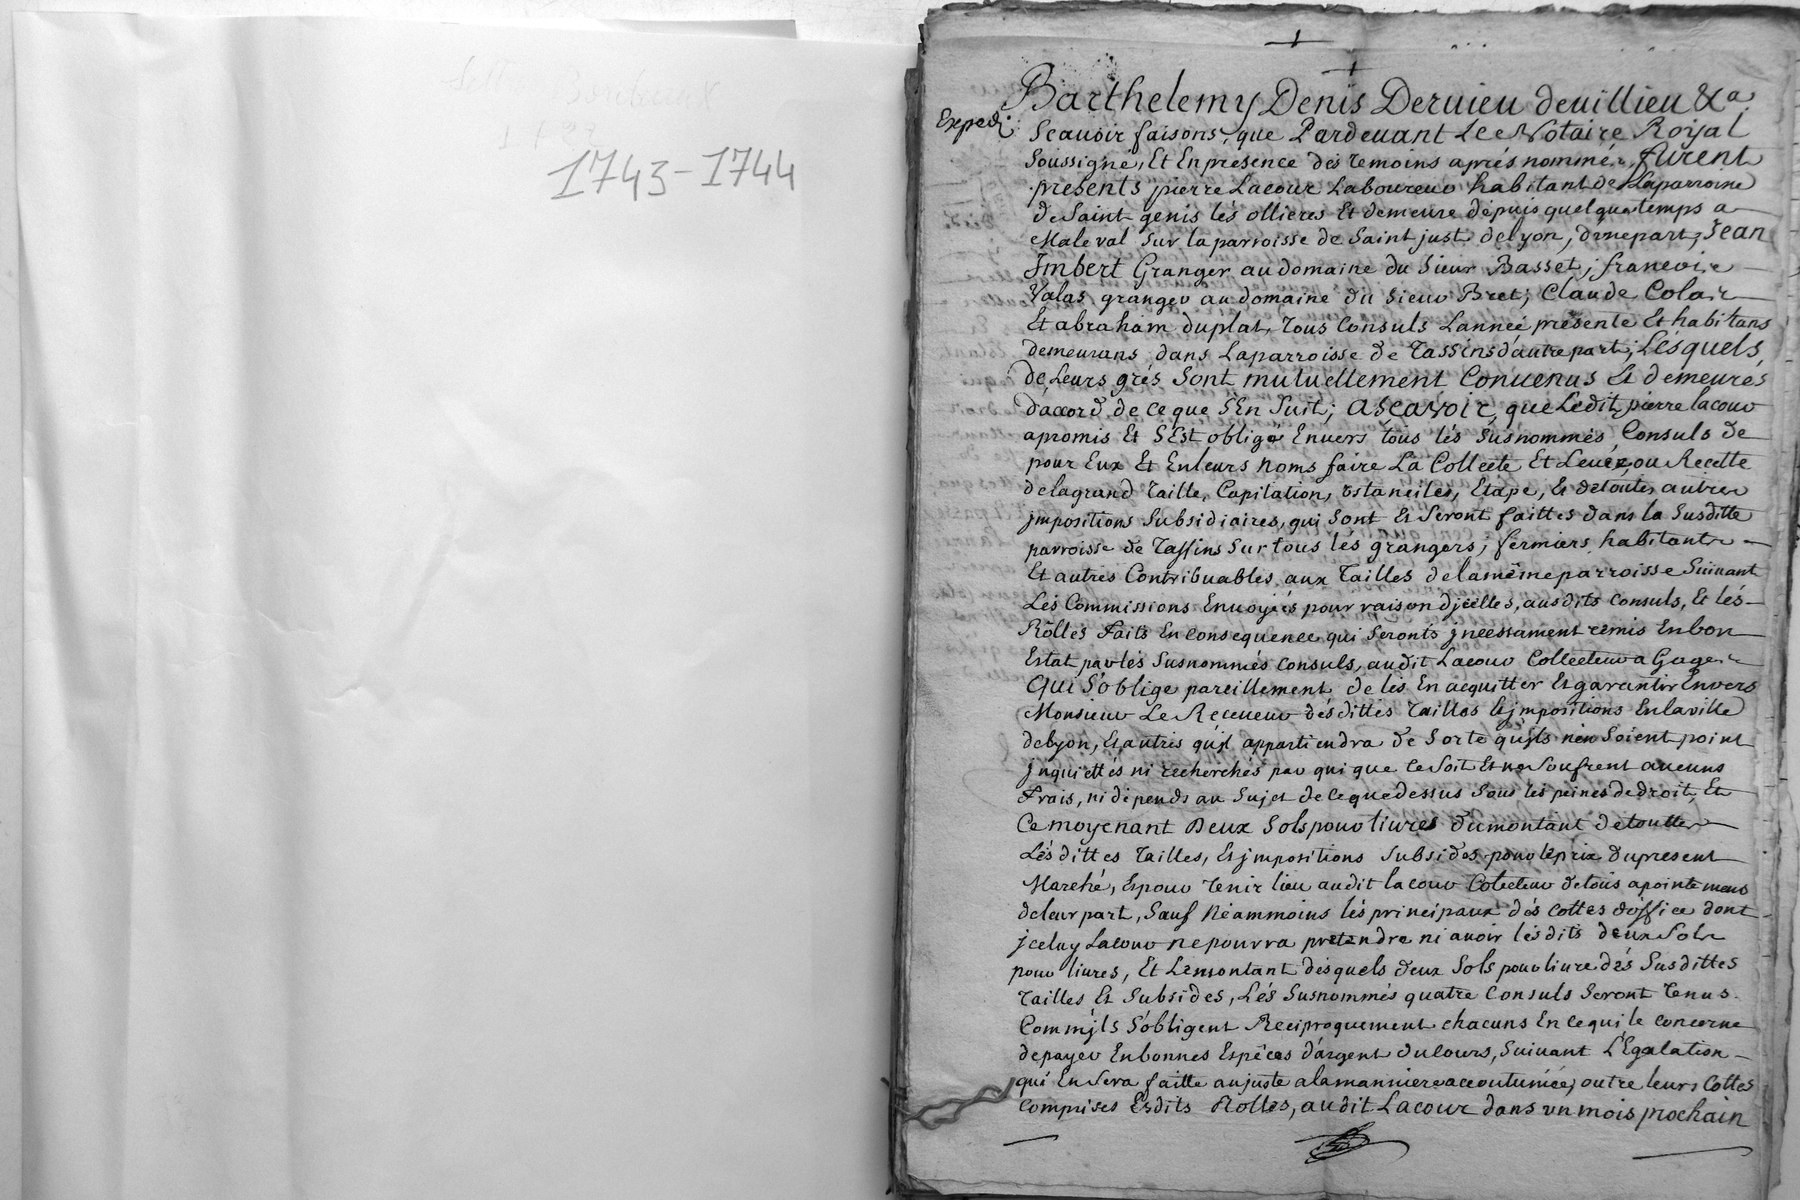 1743-1744
Expedi.
Barthelemy Denis Dervieu devillieu &a
Scavoir faisons, que Pardevant Le Notaire Royal
Soussigné, Et En presence dés temoins aprés nommés furent
presents pierre Lacour Laboureur habitant de Laparroisse
de Saint genis lés ollieres Et demeure dépuis quelque temps a
Maleval sur la parroisse de Saint just de lyon, d'une part, Jean
Jmbert Granger au domaine du Sieur Basset; francois
Valas granger au domaine du Sieur Bret; Claude Colair
Et abraham duplat, tous Consuls Lanneé présente Et habitans
demeurans dans Laparroisse de Tassins d'autre part; Lésquels
de Leurs grés Sont mutuellement Convenus Et demeurés
d'accord de ce que S'En Suit; Ascavoir, que Ledit pierre lacour
a promis Et S'Est obligé Envers tous lés Susnommés Consuls de
pour Eux Et En leurs noms faire La Collecte Et Levéz, ou Recette
de la grand Taille, Capitation, Ustancilles, Etape, Et détoutes autres
jmpositions Subsidiaires, qui Sont Et Seront faittes dans la Susditte
parroisse de Tassins Sur tous lés grangers, fermiers habitants
Et autres Contribuables aux Tailles de la même parroisse Suivant
Lés Commissions Envoyéés pour raison d'jcelles, ausdits Consuls, Et lés
Rôlles faits En consequence qui Seronts jncessament remis En bon
Estat par lés Susnommés consuls, audit Lacour Collecteur a Gages
qui S'oblige pareillement de lés En acquitter Et garantir Envers
Monsieur Le Receveur désdittes Tailles Et jmpositions En la ville
de lyon, Et autres qu'jl appartiendra de Sorte qu'jls n'en Soient point
jnquiettés ni recherchés par qui que ce Soit Et ne Soufrent aucuns
Frais, ni dépends au Sujet de ce que dessus Sous lés peines de droit, Et
Ce moyenant Deux Sols pour livres du montant de touttes
Lésdittes Tailles, Et jmpositions Subsides pour le prix du present
Marché, Et pour tenir lieu audit lacour Colecteur de tous apointemens
de leur part, Sauf Néammoins lés principaux dés cottes d'office dont
jceluy Lacour ne pourra pretendre ni avoir lésdits deux Sols
pour livres, Et Le montant désquels deux Sols pour livre dés Susdittes
Tailles Et Subsides, Lés Susnommés quatre Consuls Seront Tenus
Comm'jls S'obligent Reciproquement chacuns En ce qui le concerne
de payer En bonnes Espéces d'argent du Cours, Suivant L'Egalation
qui En Sera faitte au juste a la manniere accoutuméé, outre leurs Cottes
comprises Esdits Rolles, audit Lacour dans un mois prochain